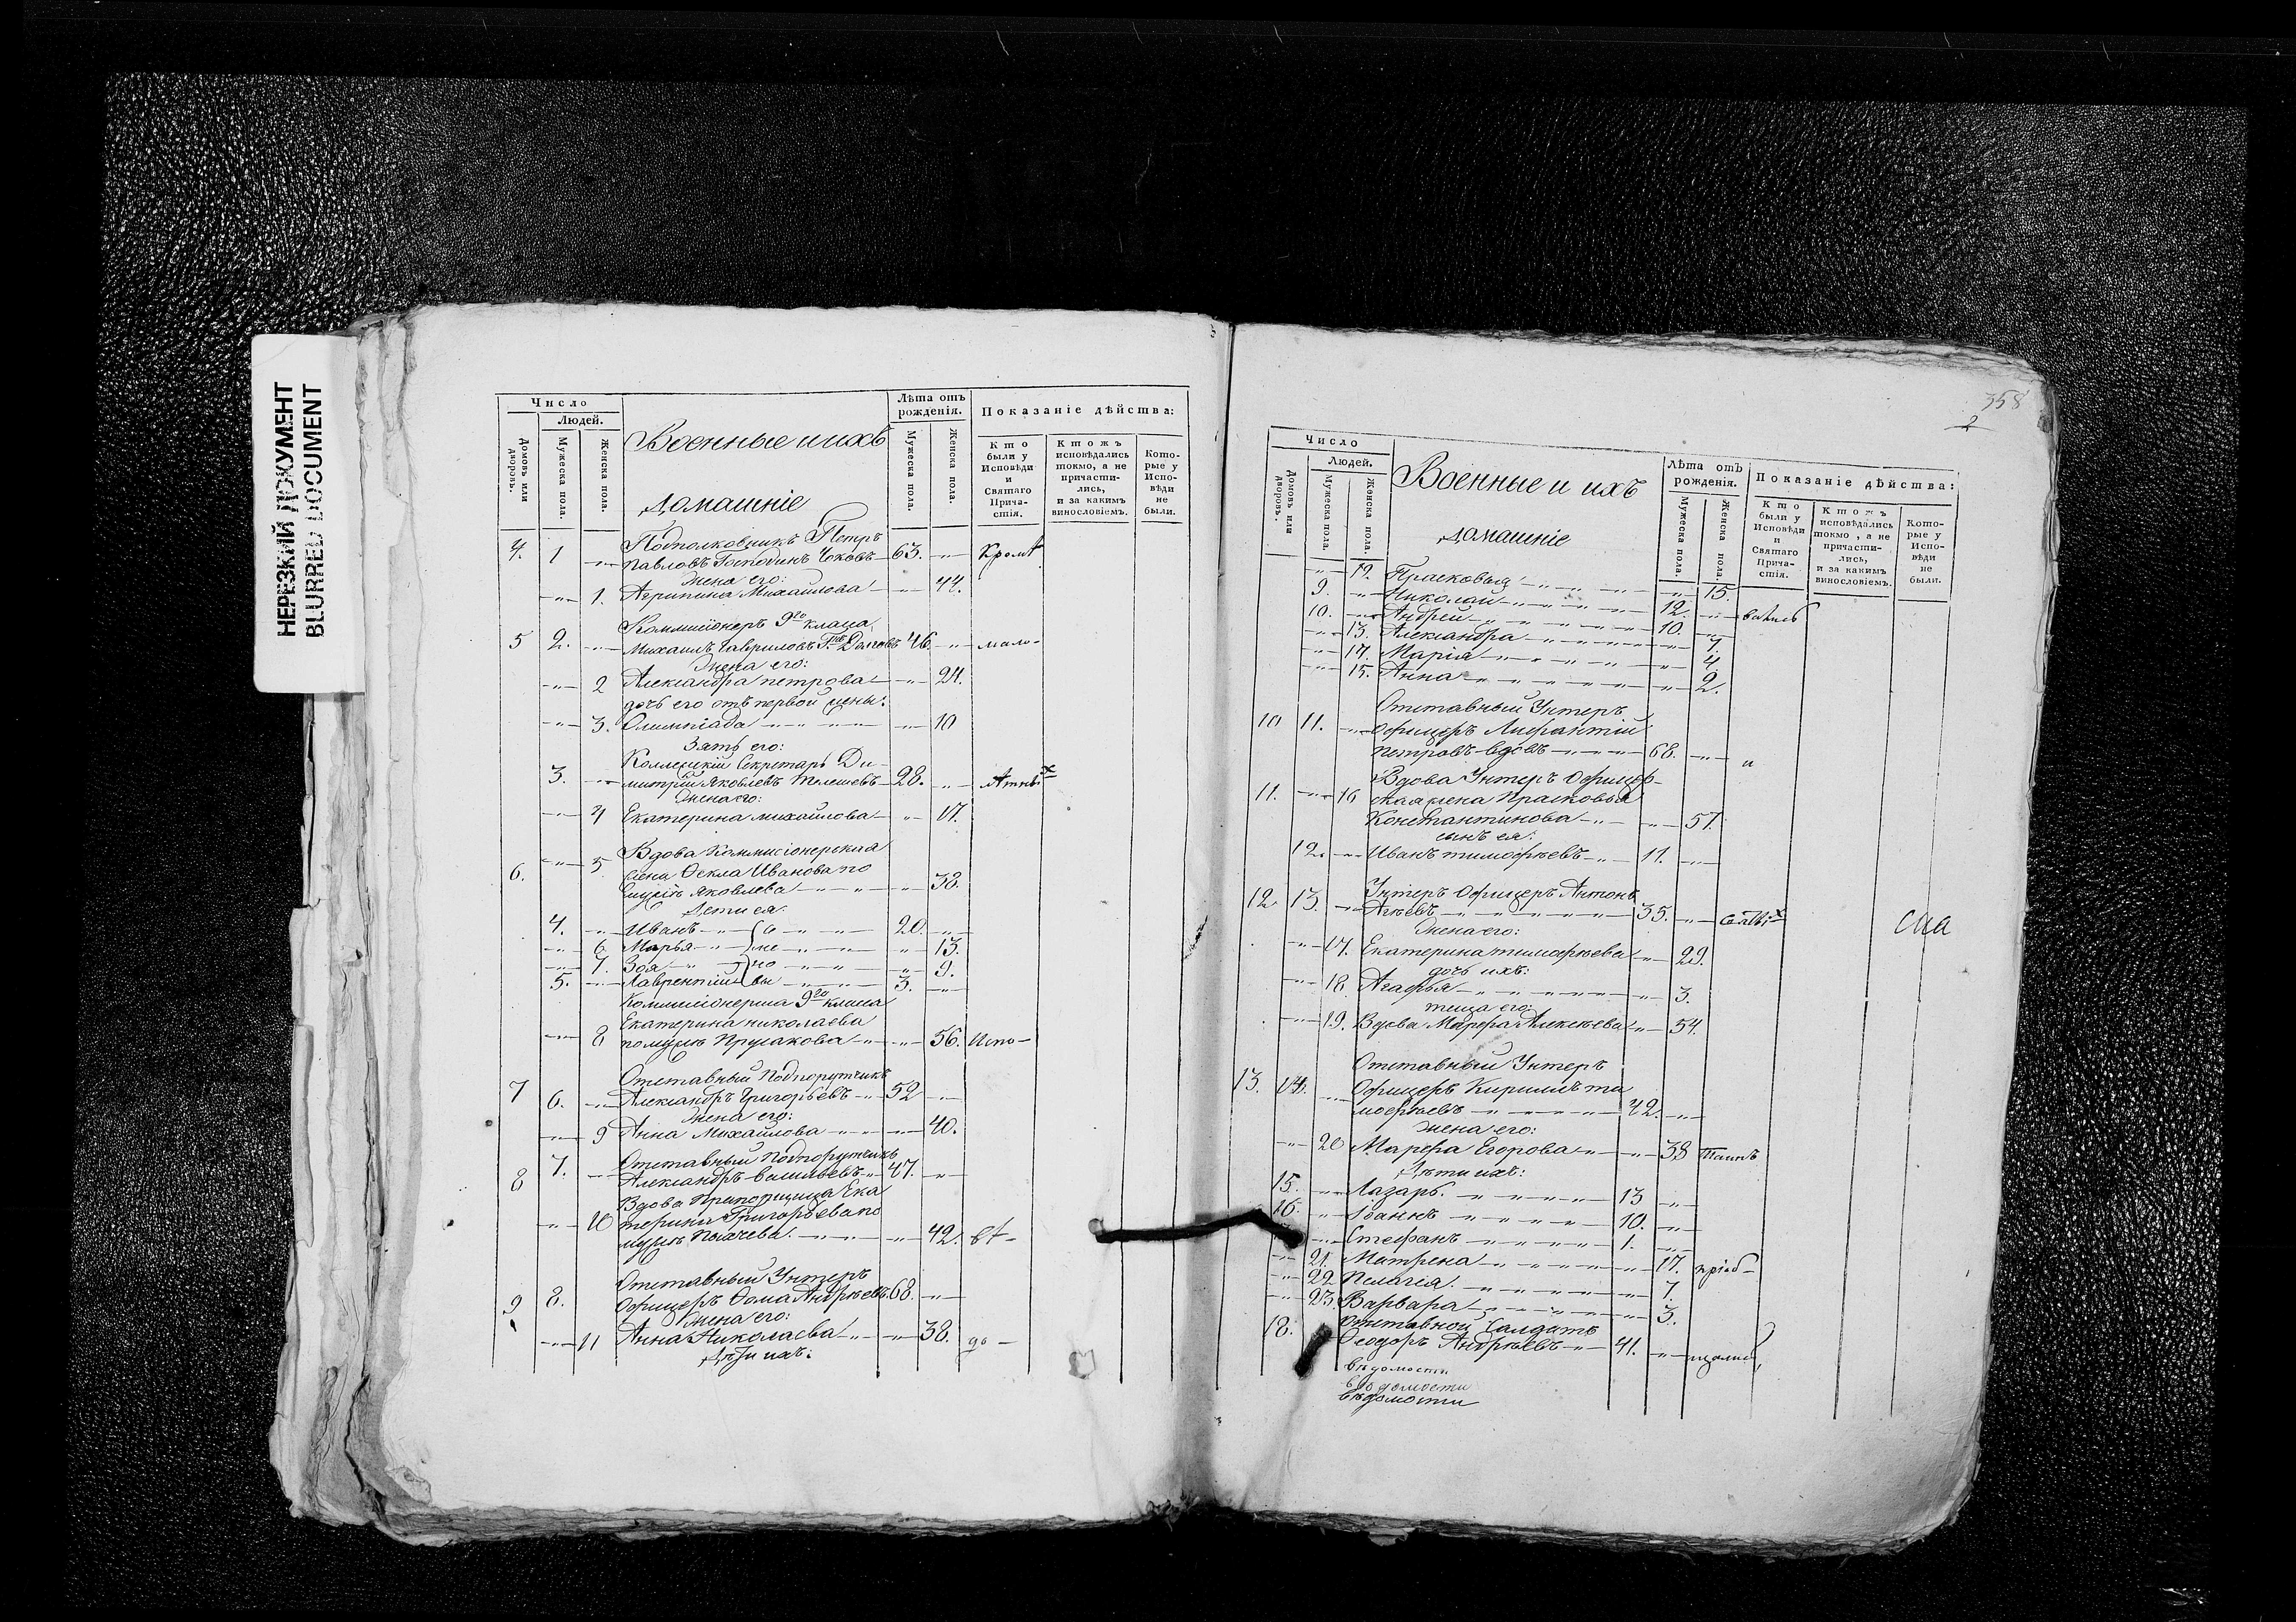 НЕРЕЗКИЙ ДОКУМЕНТ
BLURRED DOCUMENT
Число
Людей.
Домовъ или дворовъ.
Мужеска пола.
Женска пола.
Военные и ихъ
домашніе
Лѣта отъ рожденія.
Мужеска пола.
Женска пола.
Показаніе дѣйства:
Кто были у Исповѣди и Святаго Причастія.
Ктожъ исповѣдались токмо, а не причастились, и за какимъ винословіемъ.
Которые у Исповѣди не были.
4. 1 Подполковникъ Петръ
Павловъ Господинъ 63. Кромѣ
жена его:
1. Агрипина Михайлова 44.
Коммисіонеръ 9го класа
5 2. Михаилъ Гавриловъ 46. мало-
жена его:
2 Александра петрова 24.
дочь его отъ первой жены:
3. Олимпіада 10
Зять его:
Коллежскій Секретарь Ди-
3. митрій Яковлевъ Телешевъ 28. лѣтныхъ
жена его:
4 Екатерина михайлова 17.
Вдова Коммисіонерская
6. 5 жена Ѳекла Иванова по
мужѣ Яковлева 38.
Дети ея:
4. Иванъ 20.
6 Марья 13.
7. Зоя 9.
5. Лаврентій 3.
Коммисіонерша 9го класа
Екатерина николаева
8 по мужѣ Пругакова 56. Испо-
Отставный Подпорутчикъ
7 6. Александръ Григорьевъ 52
жена его:
9 Анна Михайлова 40.
Отставный Подпорутчикъ
8 7. Александръ Васильевъ 47.
Вдова Прапорщица Ека
10 терина Григорьева по
мужѣ 42. вѣ-
Отставный Унтеръ
9 8. Офицеръ Ѳома Андрѣевъ 68.
жена его:
11 Анна Николаева 38. до-
Дѣти ихъ:
358
2
Число
Людей.
Домовъ или дворовъ.
Мужеска пола.
Женска пола.
Военные и ихъ
домашніе
Лѣта отъ рожденія.
Мужеска пола.
Женска пола.
Показаніе дѣйства:
Кто были у Исповѣди и Святаго Причастія.
Ктожъ исповѣдались токмо, а не причастились, и за какимъ винословіемъ.
Которые у Исповѣди не были.
12. Прасковья 15.
9. Николай 12. вались
10. Андрей 10.
13. Александра 7.
14. Марія 4.
15. Анна 2.
Отставный Унтеръ
10 11. Офицеръ
Петровъ вдовъ 68. и
Вдова Унтеръ Офицер-
11. 16 ская жена Прасковья
Константинова 57.
сынъ ея:
12. Иванъ тимофѣевъ 11.
Унтеръ Офицеръ Антонъ
12. 13. 35. святыхъ
жена его:
17. Екатерина тимофѣева 29.
дочь ихъ:
18 Агафья 3.
теща его:
19. Вдова Марфа Алексѣева 54.
Отставный Унтеръ
13. 14. Офицеръ Кирилъ ти
мофѣевъ 42.
жена его:
20 Марфа Егорова 38 Таинъ
Дѣти ихъ:
15. Лазарь. 13
16. Іоаннъ 10.
Стефанъ 1.
21. Матрена 17. пріоб-
22 Пелагія 7.
23. Варвара 3.
Отставной Салдатъ
18. Ѳеодоръ Андрѣевъ 41. щались,
вѣдомости
вѣдомости
вѣдомости